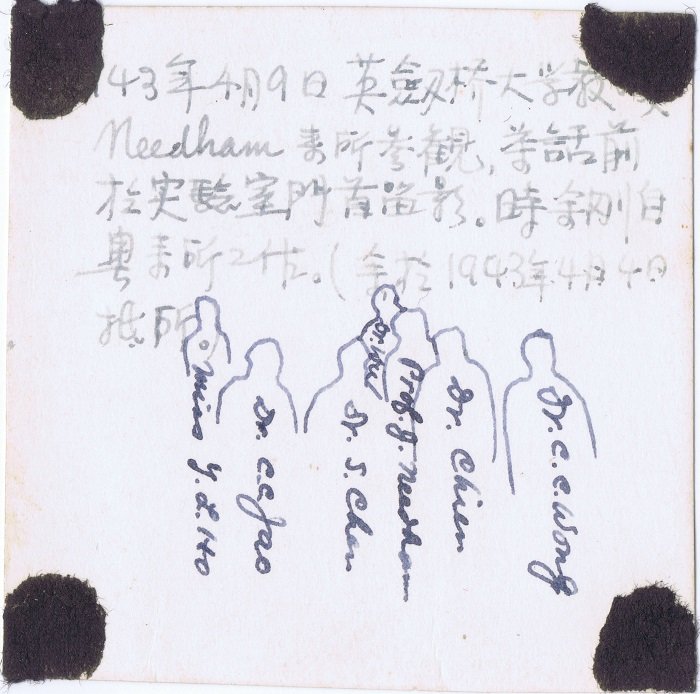 1943年4月9日 英劍桥大学教
Needham 来所参観,茶話前
於实驗室門首留影。時余刚自
粵来所工作。(余於1943年4月4日
抵所)
Miss Y. L. Ho
Dr. C. C. Jao
Dr. S. Chen
Dr. Wu
Prof. J. Needham
Dr. Chien
Dr. C. C. Wong